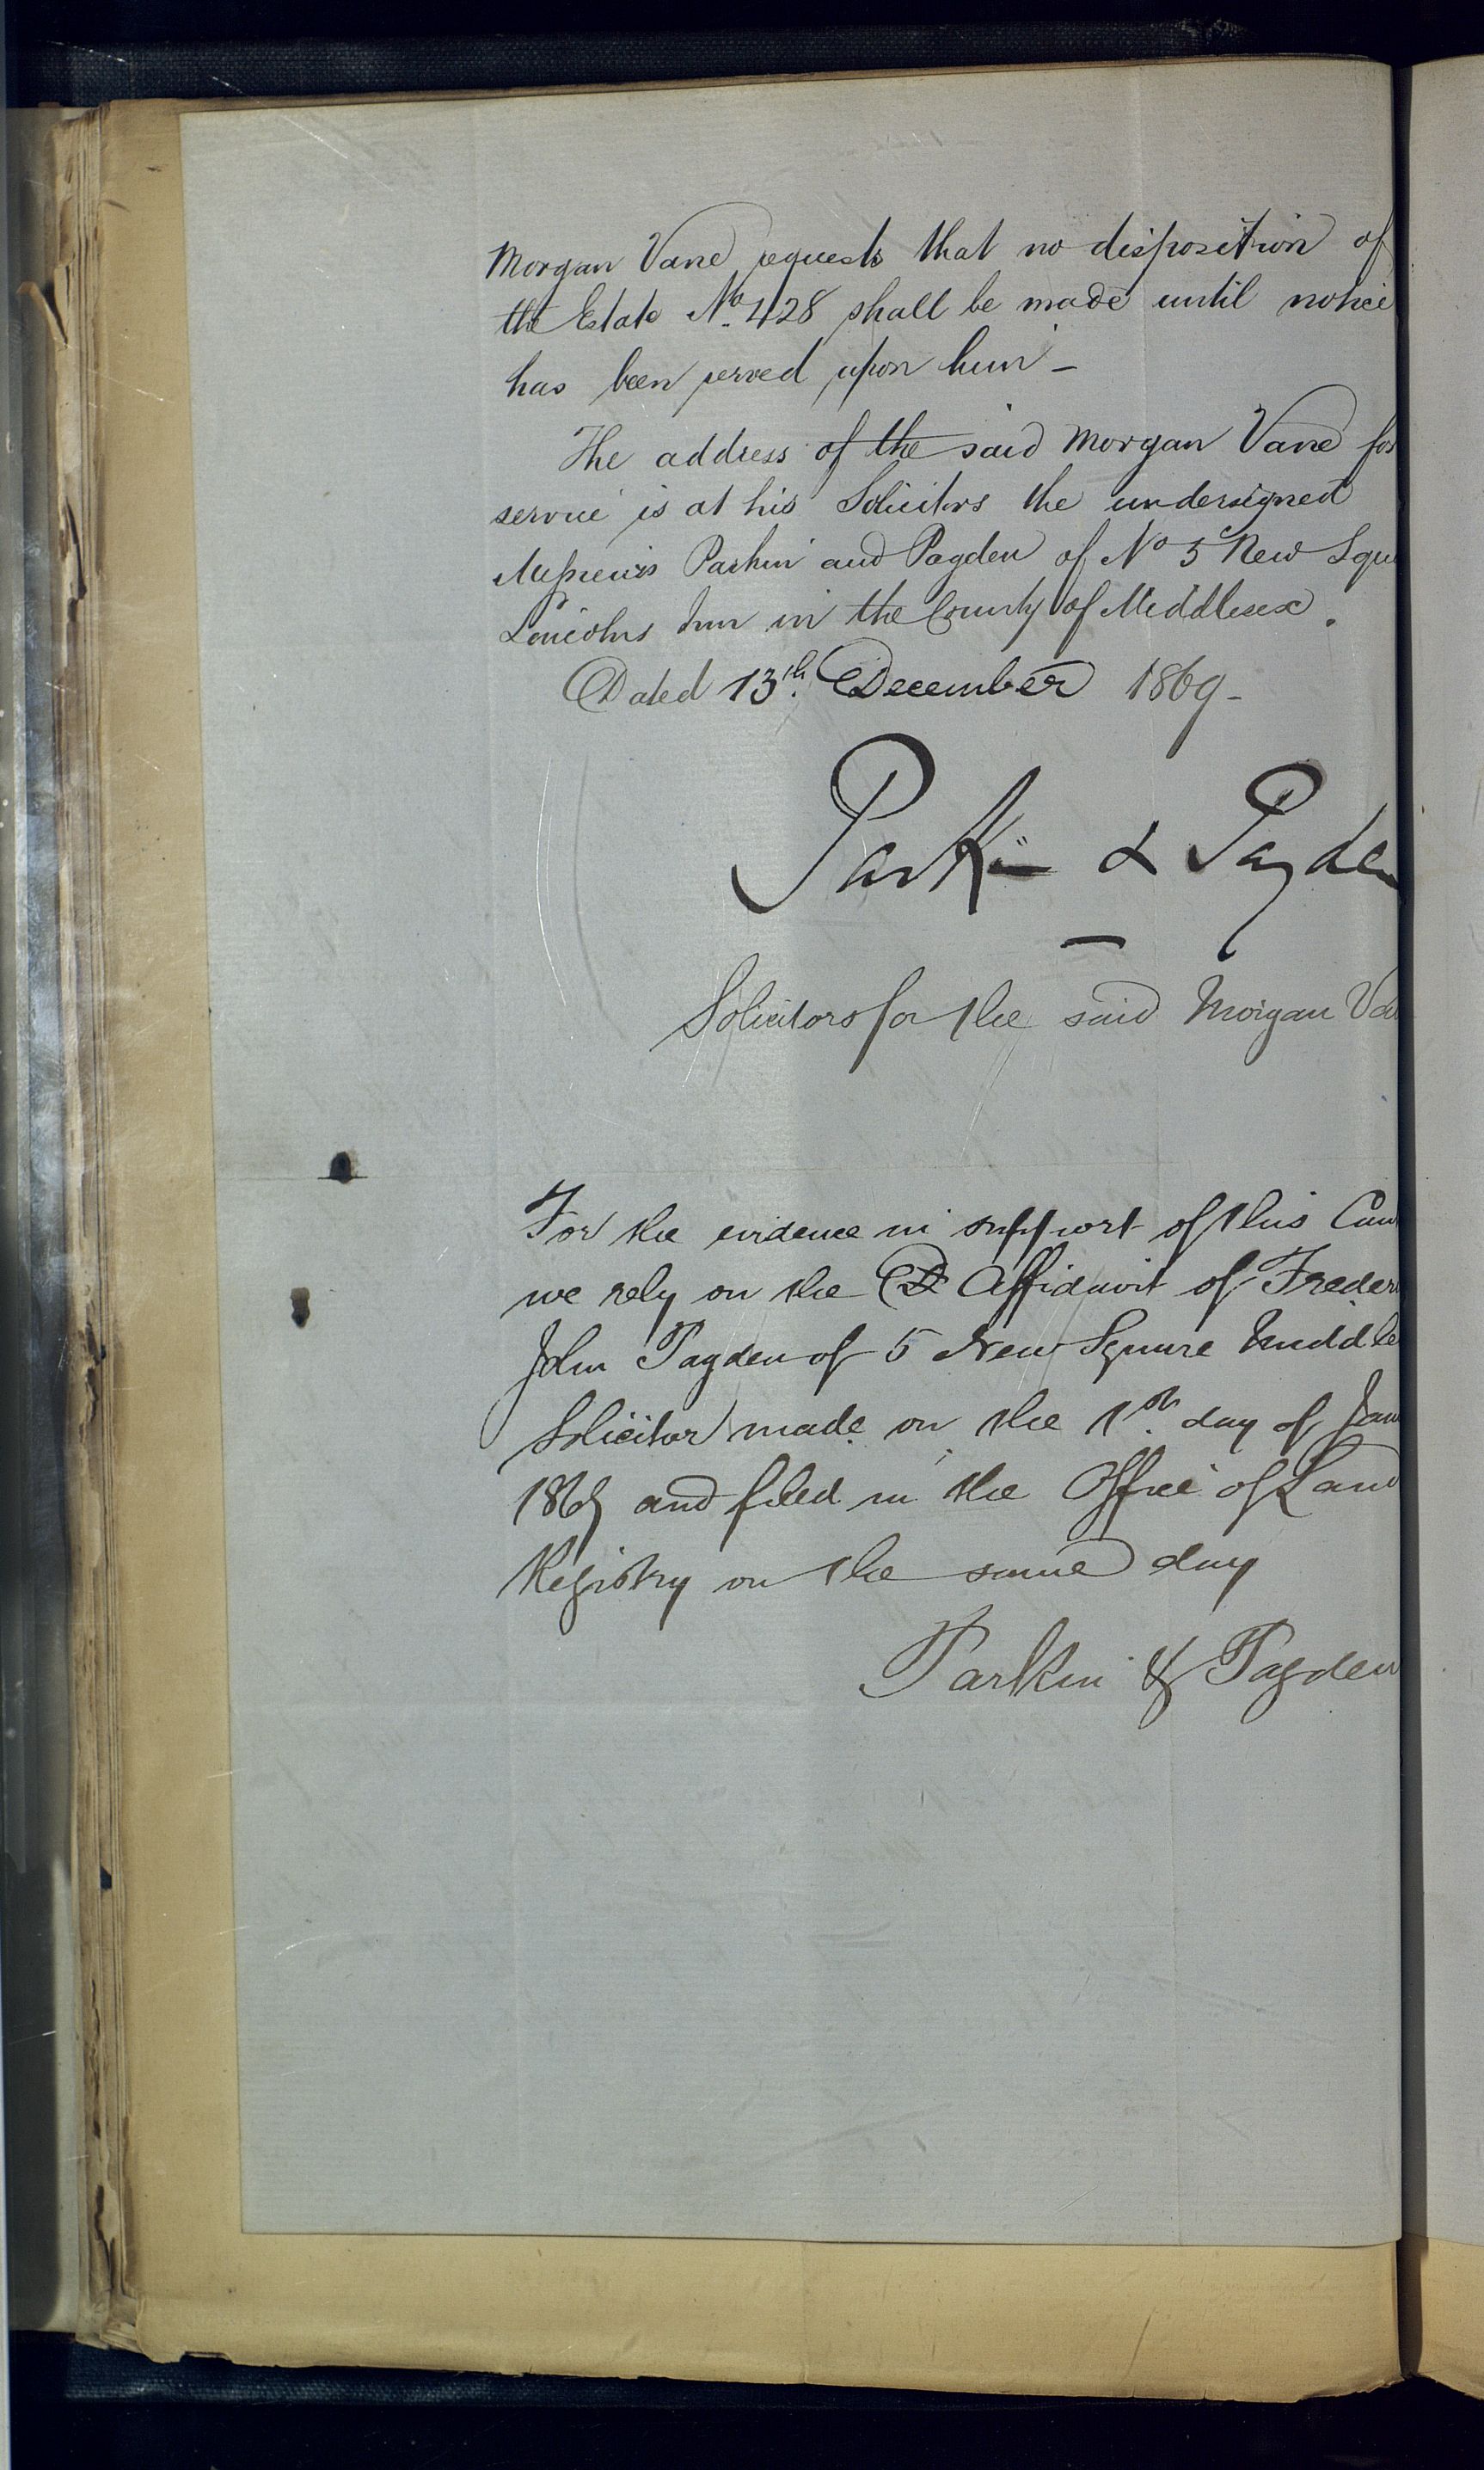 Morgan Vane requests that no disposition of
the Estate No. 428 shall be made until notice
has been served upon him -
The address of the said Morgan Vane for
service is at his Solicitors the undersigned
Messieurs Parkin and Pagden of No 5 New Squ
Lincolns Inn in the County of Middlesex.
Dated 13th. December 1869-
Parkin & Pagden
Solicitors for the said Morgan Va
For the evidence in support of this Cau
we rely on the Affidavit of Freder
John Pagden of 5 New Square Middle
Solicitor made on the 1st. day of Jan
and filed in the Office of Land
Registry on the same day
Parkin & Pagden